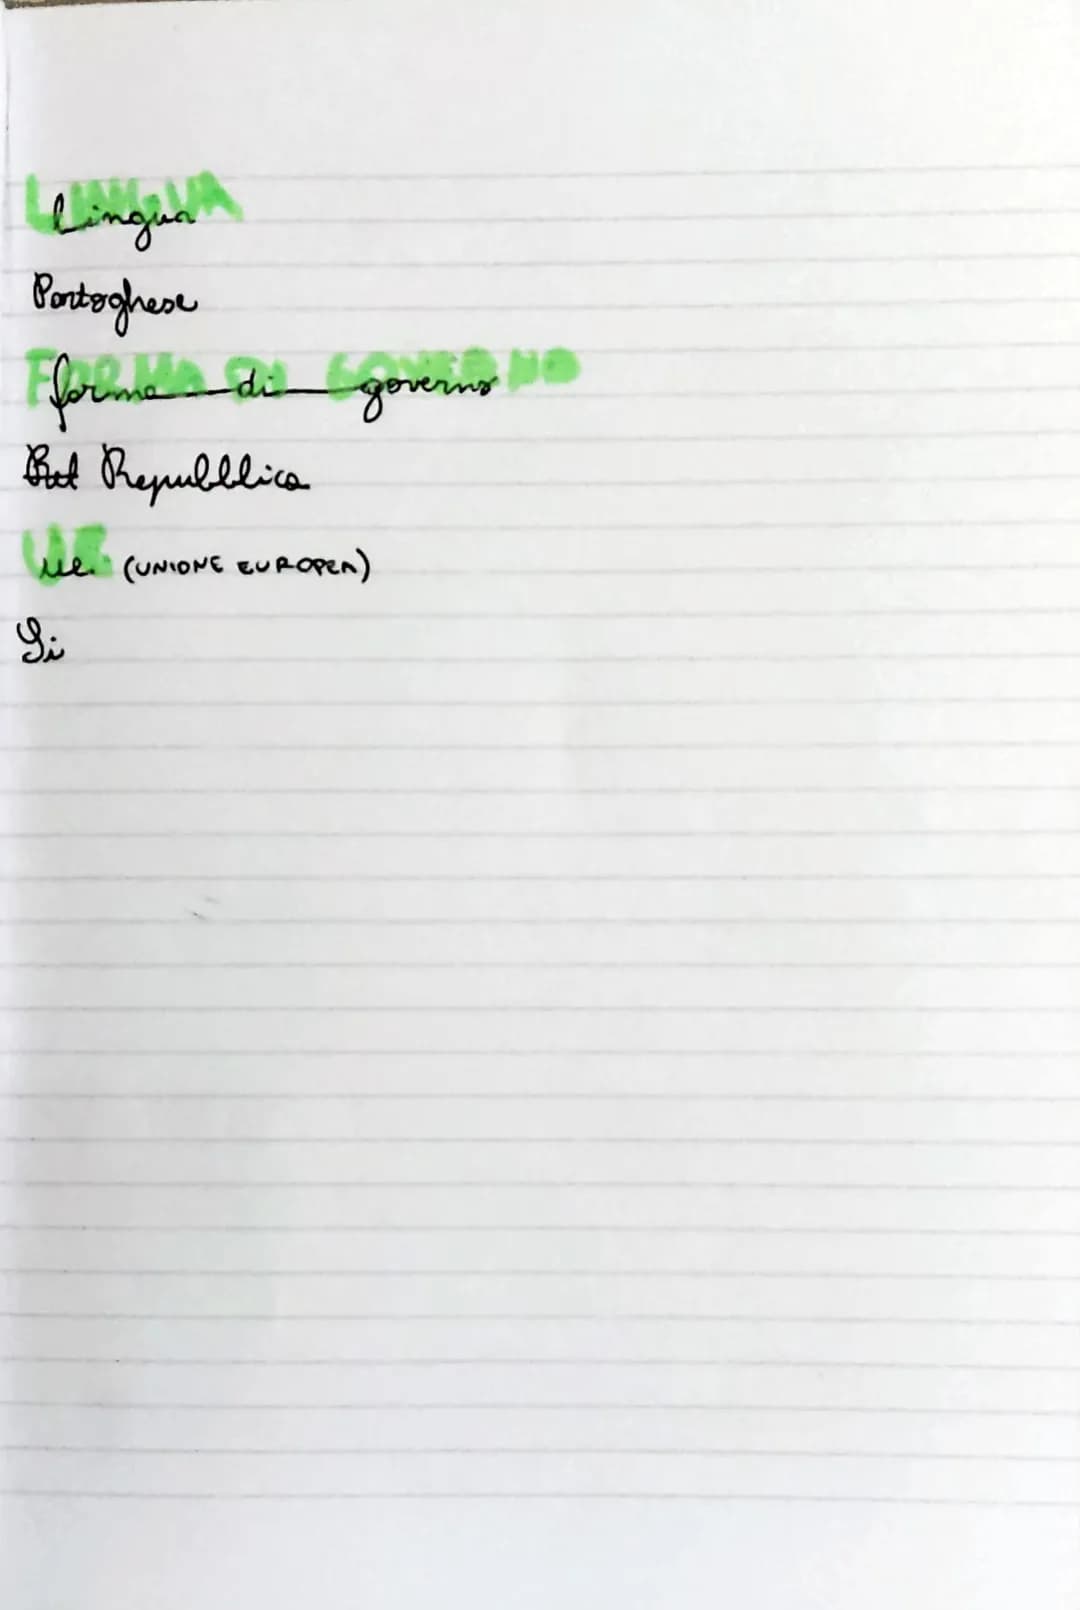 LINGUA
Lingua
Portoghese
FORMA DI GOVERNO
forma di governo
Repubblica
UE
ue. (UNIONE EUROPEA)
Si